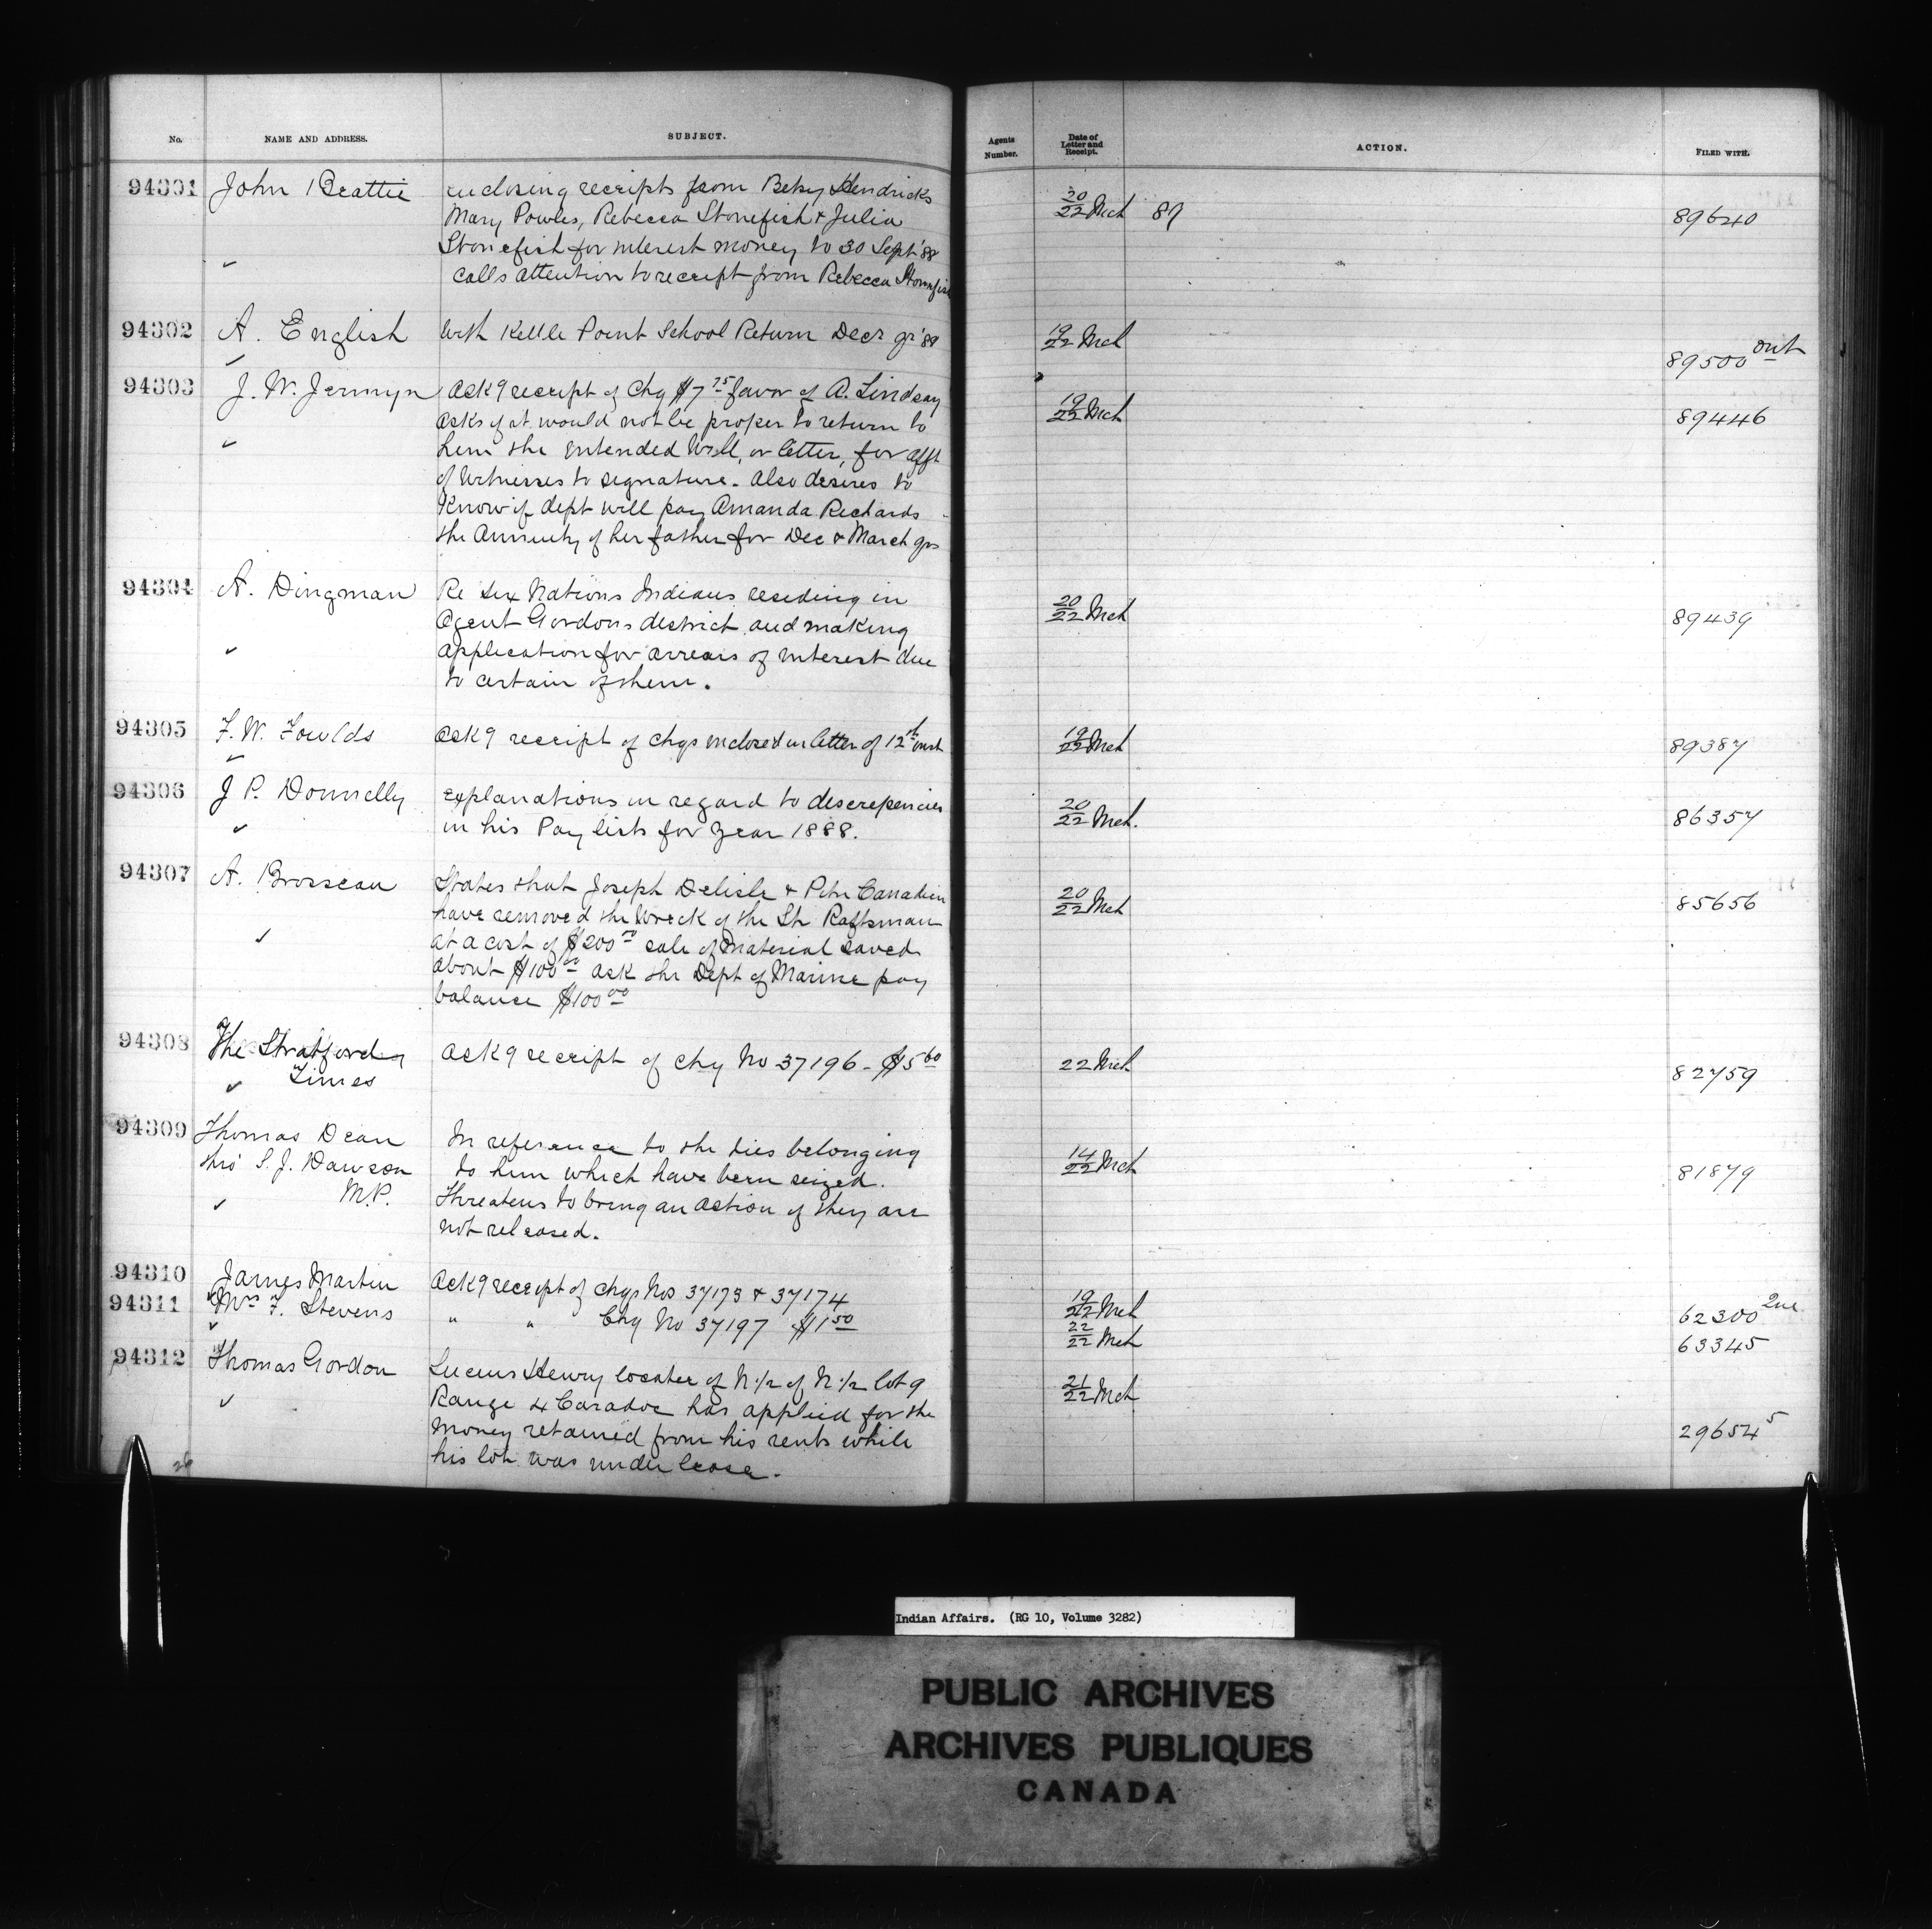 No. NAME AND ADDRESS. SUBJECT. Agents Number. Date of Letter and Receipt. ACTION. FILED WITH.
94301 John Beattie enclosing receipts from Betsy Hendricks 20/22 Mch 89 89640
Mary Powles, Rebecca Stonefish & Julia
Stonefish for interest money to 30 Sept '88
calls attention to receipt from Rebecca Stonefish
94302 A. English With Kettle Point School Return Decr qr '88 19/22 Mch 89500
94303 J. W. Jermyn Ackg receipt of Chq $7 75 favor of A. Lindsay 19/22 Mch 89446
asks if it would not be proper to return to
him the intended Will, or letter, for afft
of Witnesses to signature. Also desires to
Know if dept will pay Amanda Richards
the Annuity of her father for Dec & March qrs
94304 A. Dingman Re Six Nations Indians residing in 20/22 Mch 89439
Agent Gordons district and making
application for arrears of interest due
to certain of them.
94305 F. W. Foulds Ackg receipt of chqs enclosed in letter of 12th inst 19/22 Mch 89387
94306 J P. Donnelly explanations in regard to discrepencies 20/22 Mch. 86357
in his Pay lists for year 1888.
94307 A. Brosseau States that Joseph Delisle & Peter Canadien 20/22 Mch 85656
have removed the Wreck of the Str Raftsman
at a cost of $200 00 sale of Material saved
about $100 00 ask the Dept of Marine pay
balance $100 00
94308 The Stratford Ackg receipt of chq No 37196 - $5 60 22 Mch 82759
Times
94309 Thomas Dean In reference to the ties belonging 14/22 Mch 81879
thro' S. J. Dawson to him which have been seized.
M.P. Threatens to bring an action if they are
not released.
94310 James Martin Ackg receipt of chqs Nos 37173 & 37174 19/22 Mch 62300
94311 Mrs F. Stevens " " Chq No 37197 $1 50 22/22 Mch 63345
94312 Thomas Gordon Lucius Henry locatee of N. 1/2 of N. 1/2 lot 9 21/22 Mch 29654 5
Range 4 Caradoc has applied for the
money retained from his rents while
his lot was under lease.
26
Indian Affairs. (RG 10, Volume 3282)
PUBLIC ARCHIVES
ARCHIVES PUBLIQUES
CANADA